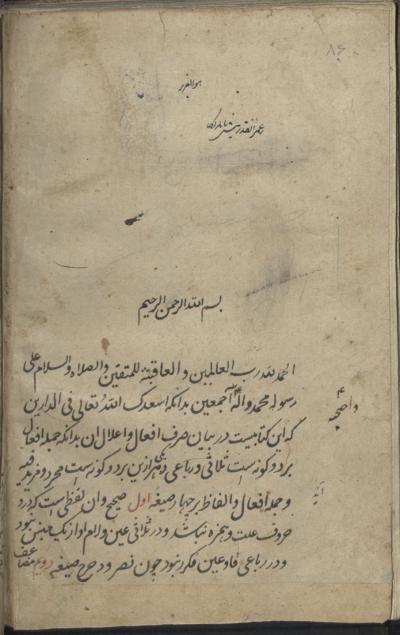 هو العزیز
بسم الله الرحمن الرحیم
الحمد لله رب العالمین والعاقبة للمتقین والصلاه والسلام علی
رسوله محمد واله اجمعین بدانکه اسعدک الله تعالی فی الدارین
که این کتابیست در بیان صرف افعال و اعلال ان بدانکه جمله افعال
بر دو کونه است ثلاثی و رباعی و هر یکی ازین بر دو کونه است مجرد و مزید فیه
و جمله افعال و الفاظ بر چهار صیغه اول صحیح و ان لفظی است که درو
حروف علت و همزه نباشد و در ثلاثی عین و لام او از یک جنس نبود
و در رباعی فا و عین مکرر نبود چون نصر و دحرج صیغه دویم مضاعف
واصحبه